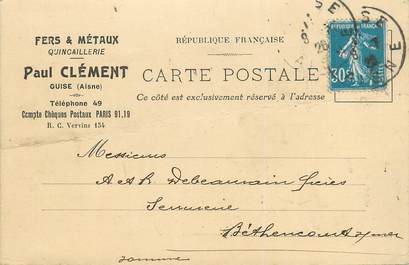 FERS & MÉTAUX
QUINCAILLERIE
Paul CLÉMENT
GUISE (Aisne)
Téléphone 49
Compte Chèques Postaux PARIS 91.19
R. C. Vervins 154
RÉPUBLIQUE FRANÇAISE
CARTE POSTALE
Ce côté est exclusivement réservé à l'adresse
30
Messieurs
A et R Debeaurain frères
Serrurerie
Béthencourt s/mer
Somme